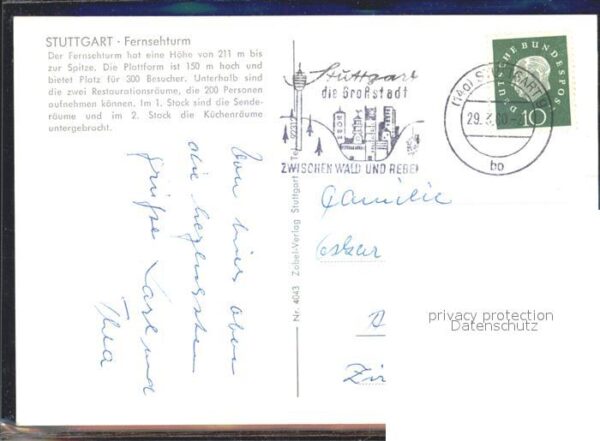 STUTTGART · Fernsehturm
Der Fernsehturm hat eine Höhe von 211 m bis
zur Spitze. Die Plattform ist 150 m hoch und
bietet Platz für 300 Besucher. Unterhalb sind
die zwei Restaurationsräume, die 200 Personen
aufnehmen können. Im 1. Stock sind die Sende-
räume und im 2. Stock die Küchenräume
untergebracht.
Von hier oben
die herzlichsten
Grüße
und
Thea
Nr. 4043 Zobel-Verlag Stuttgart
Stuttgart
die Großstadt
ZWISCHEN WALD UND REBEN
(14a) STUTTGART
29.3.60
bo
DEUTSCHE BUNDESPOST
10
Familie
Oskar
A
privacy protection
Datenschutz